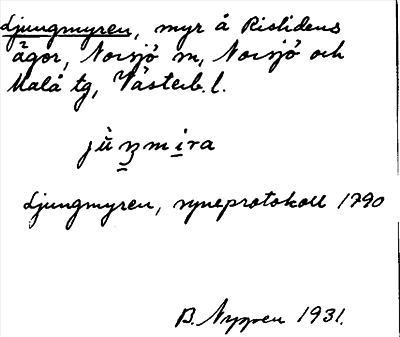 Ljungmyren, myr å Rislidens
ägor, Norsjö sn, Norsjö och
Malå tg, Västerb. l.
Ljungmyren, syneprotokoll 1790
B. Nyppen 1931.